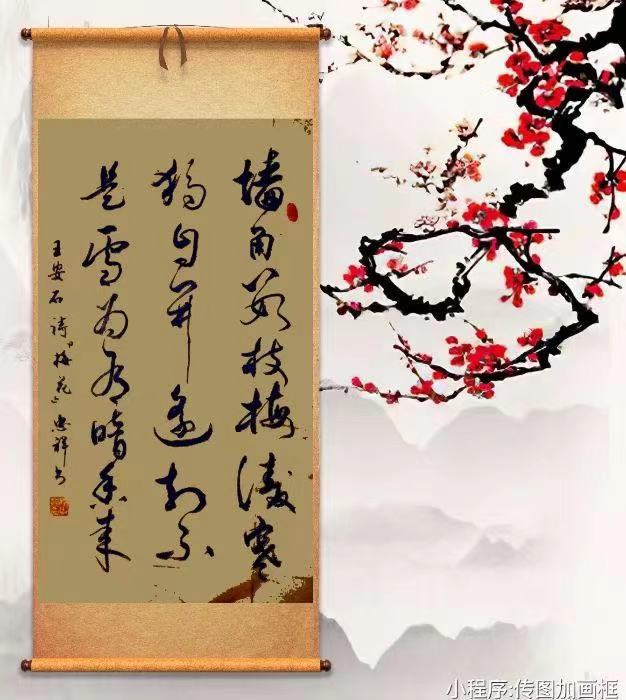 墙角数枝梅凌寒
独自开遥知不
是雪为有暗香来
王安石诗「梅花」祥书
小程序:传图加画框